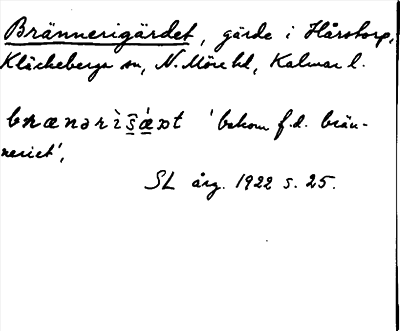 Brännerigärdet, gärde i Hårstorp,
Kläckeberga sn, N. Möre hd, Kalmar l.
brænərìŝǽɒt 'bakom f.d. brän-
neriet',
SL årg. 1922 s. 25.